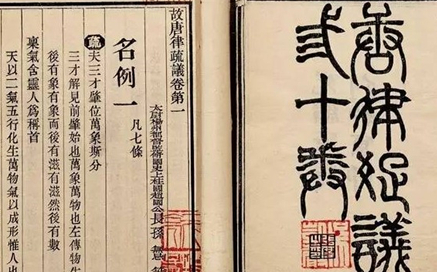 唐律疏議
弎十卷
故唐律疏議卷第一
太尉揚州都督監修國史上柱國趙國公長孫無忌
名例一 凡七條
疏夫三才肇位萬象斯分
三才解見前肇始也萬象萬物也左傳物生
後有象有象而後有滋有滋然後有數
稟氣含靈人爲稱首
天以二氣五行化生萬物氣以成形惟人也